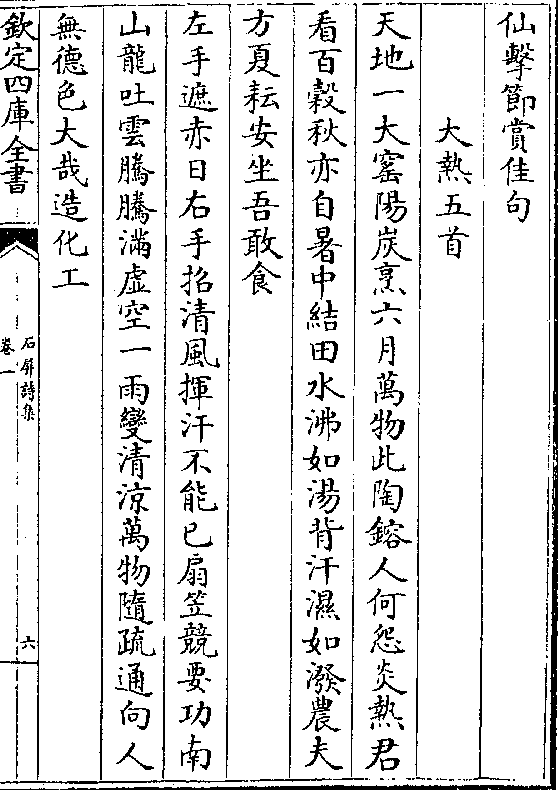 仙擊節賞佳句
大熱五首
天地一大窰陽炭烹六月萬物此陶鎔人何怨炎熱君
看百穀秋亦自暑中結田水沸如湯背汗濕如潑農夫
方夏耘安坐吾敢食
左手遮赤日右手招清風揮汗不能已扇笠競要功南
山龍吐雲騰騰滿虛空一雨變清涼萬物隨疏通向人
無德色大哉造化工
欽定四庫全書
石屏詩集
卷一
六